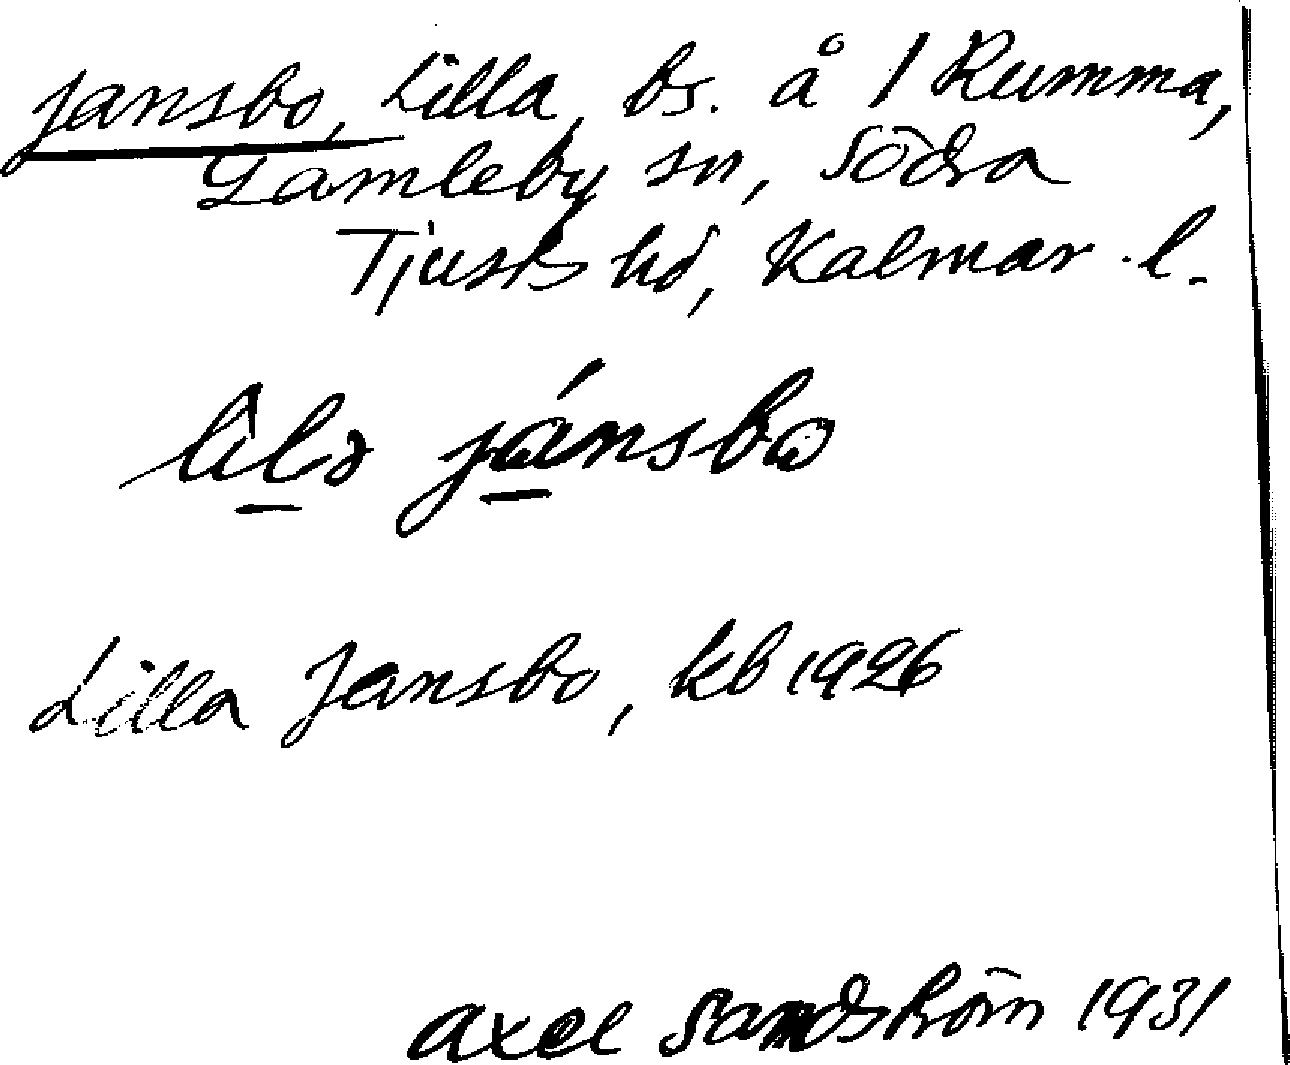 Jansbo, Lilla, bs. å 1 Rumma,
Gamleby sn, Södra
Tjusts hd, Kalmar l.
lilə jánsbo
Lilla Jansbo, kb 1926
Axel Sandström 1931